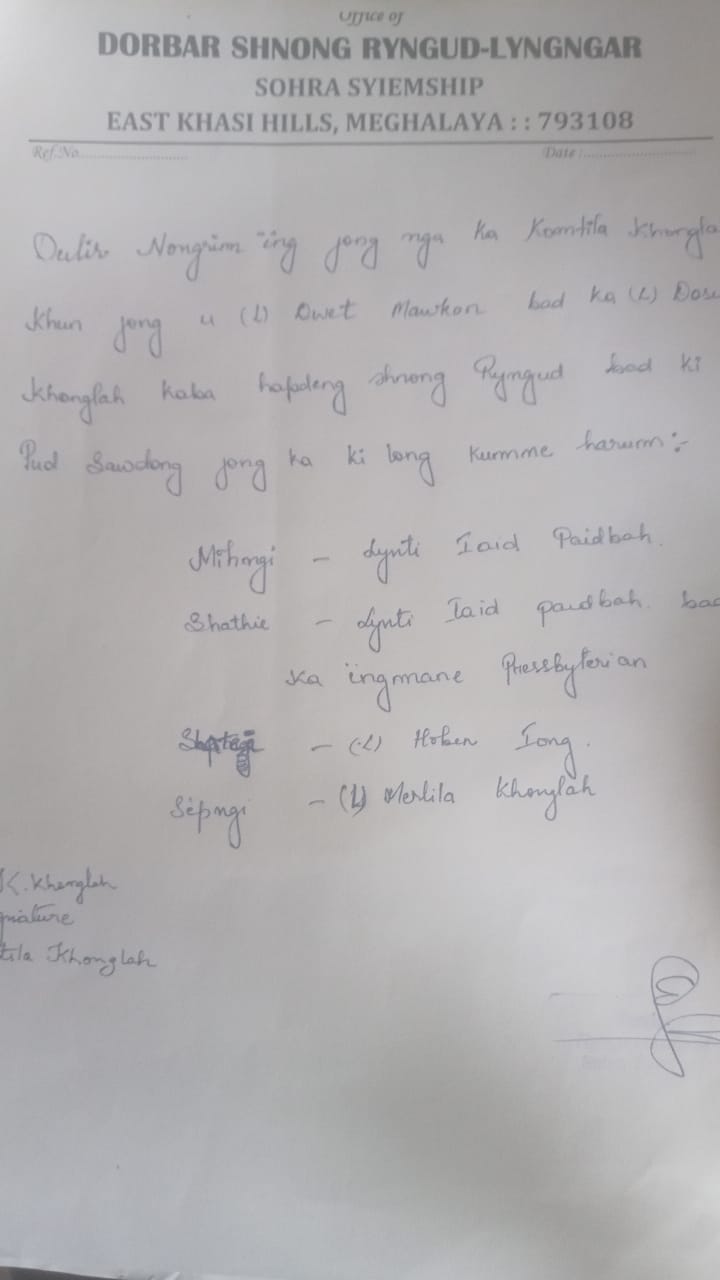 Office of
DORBAR SHNONG RYNGUD-LYNGNGAR
SOHRA SYIEMSHIP
EAST KHASI HILLS, MEGHALAYA : : 793108
Ref.No............................ Date :............................
Dulir Nongrim ïing jong nga ka Komtila Khongla
Khun jong u (L) Owet Mawkon bad ka (L) Dosi
Khonglah kaba hapdeng shnong Ryngud bad ki
Pud Sawdong jong ka ki long kumme harum:-
Mihngi - Lynti Iaid Paidbah.
Shathie - Lynti Iaid paidbah. bad
ka ïingmane Pressbyterian
- (L) Hoben Iong.
Sepngi - (L) Merlila Khonglah
K. Khonglah
gnature
tila Khonglah